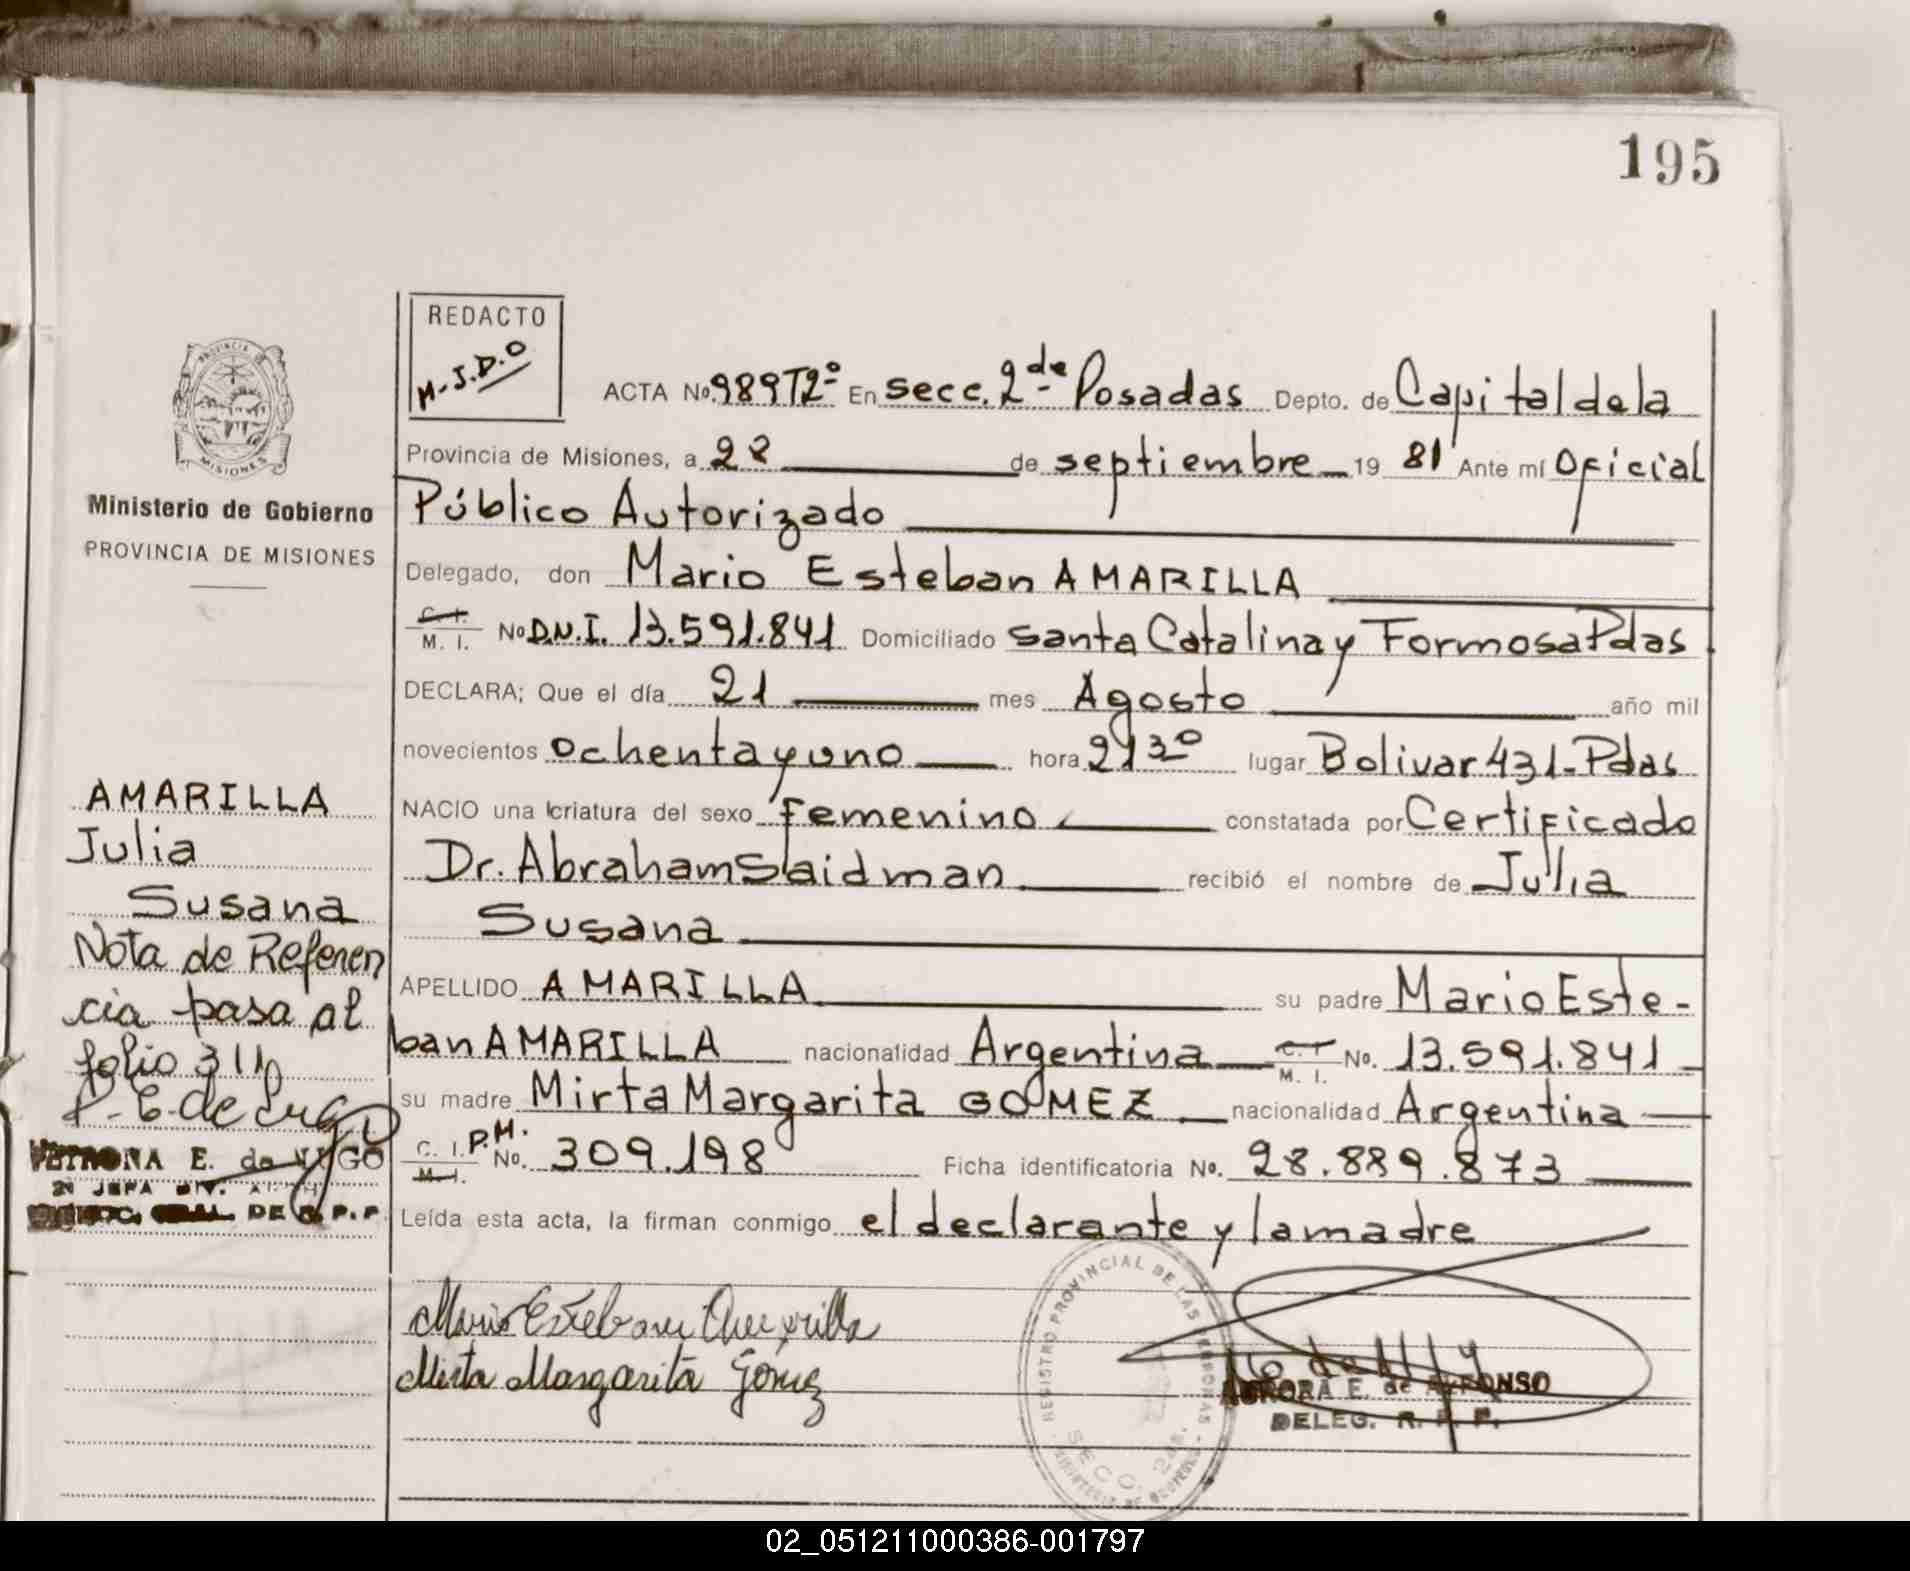 195
REDACTO
M-J.D.O
ACTA No. 989T2º En secc. 2da Posadas Depto. de Capital de la
Provincia de Misiones, a 22 de septiembre 19 81 Ante mí Oficial
Público Autorizado
Delegado, don Mario Esteban AMARILLA
C. I. M. I. No D.N.I. 13.591.841 Domiciliado Santa Catalina y Formosa Pdas
DECLARA; Que el día 21 mes Agosto año mil
novecientos ochenta y uno hora 21 30 lugar Bolivar 431-Pdas
NACIO una criatura del sexo femenino constatada por Certificado
Dr. Abraham Saidman recibió el nombre de Julia
Susana
APELLIDO AMARILLA su padre Mario Este-
ban AMARILLA nacionalidad Argentina C. I. M. I. No. 13.591.841
su madre Mirta Margarita GOMEZ nacionalidad Argentina
C. I. P.M. M. I. No. 309.198 Ficha identificatoria No. 28.889.873
Leída esta acta, la firman conmigo el declarante y la madre
Mario Esteban Amarilla
Mirta Margarita Gómez
REGISTRO PROVINCIAL DE LAS PERSONAS
SECC. 2da.
AURORA E. de ALFONSO
DELEG. R. P. P.
PROVINCIA DE
MISIONES
Ministerio de Gobierno
PROVINCIA DE MISIONES
AMARILLA
Julia
Susana
Nota de Referen
cia pasa al
folio 311
P. E. de Lugo
PETRONA E. de LUGO
JEFA DIV.
DE R. P. P.
02_051211000386-001797